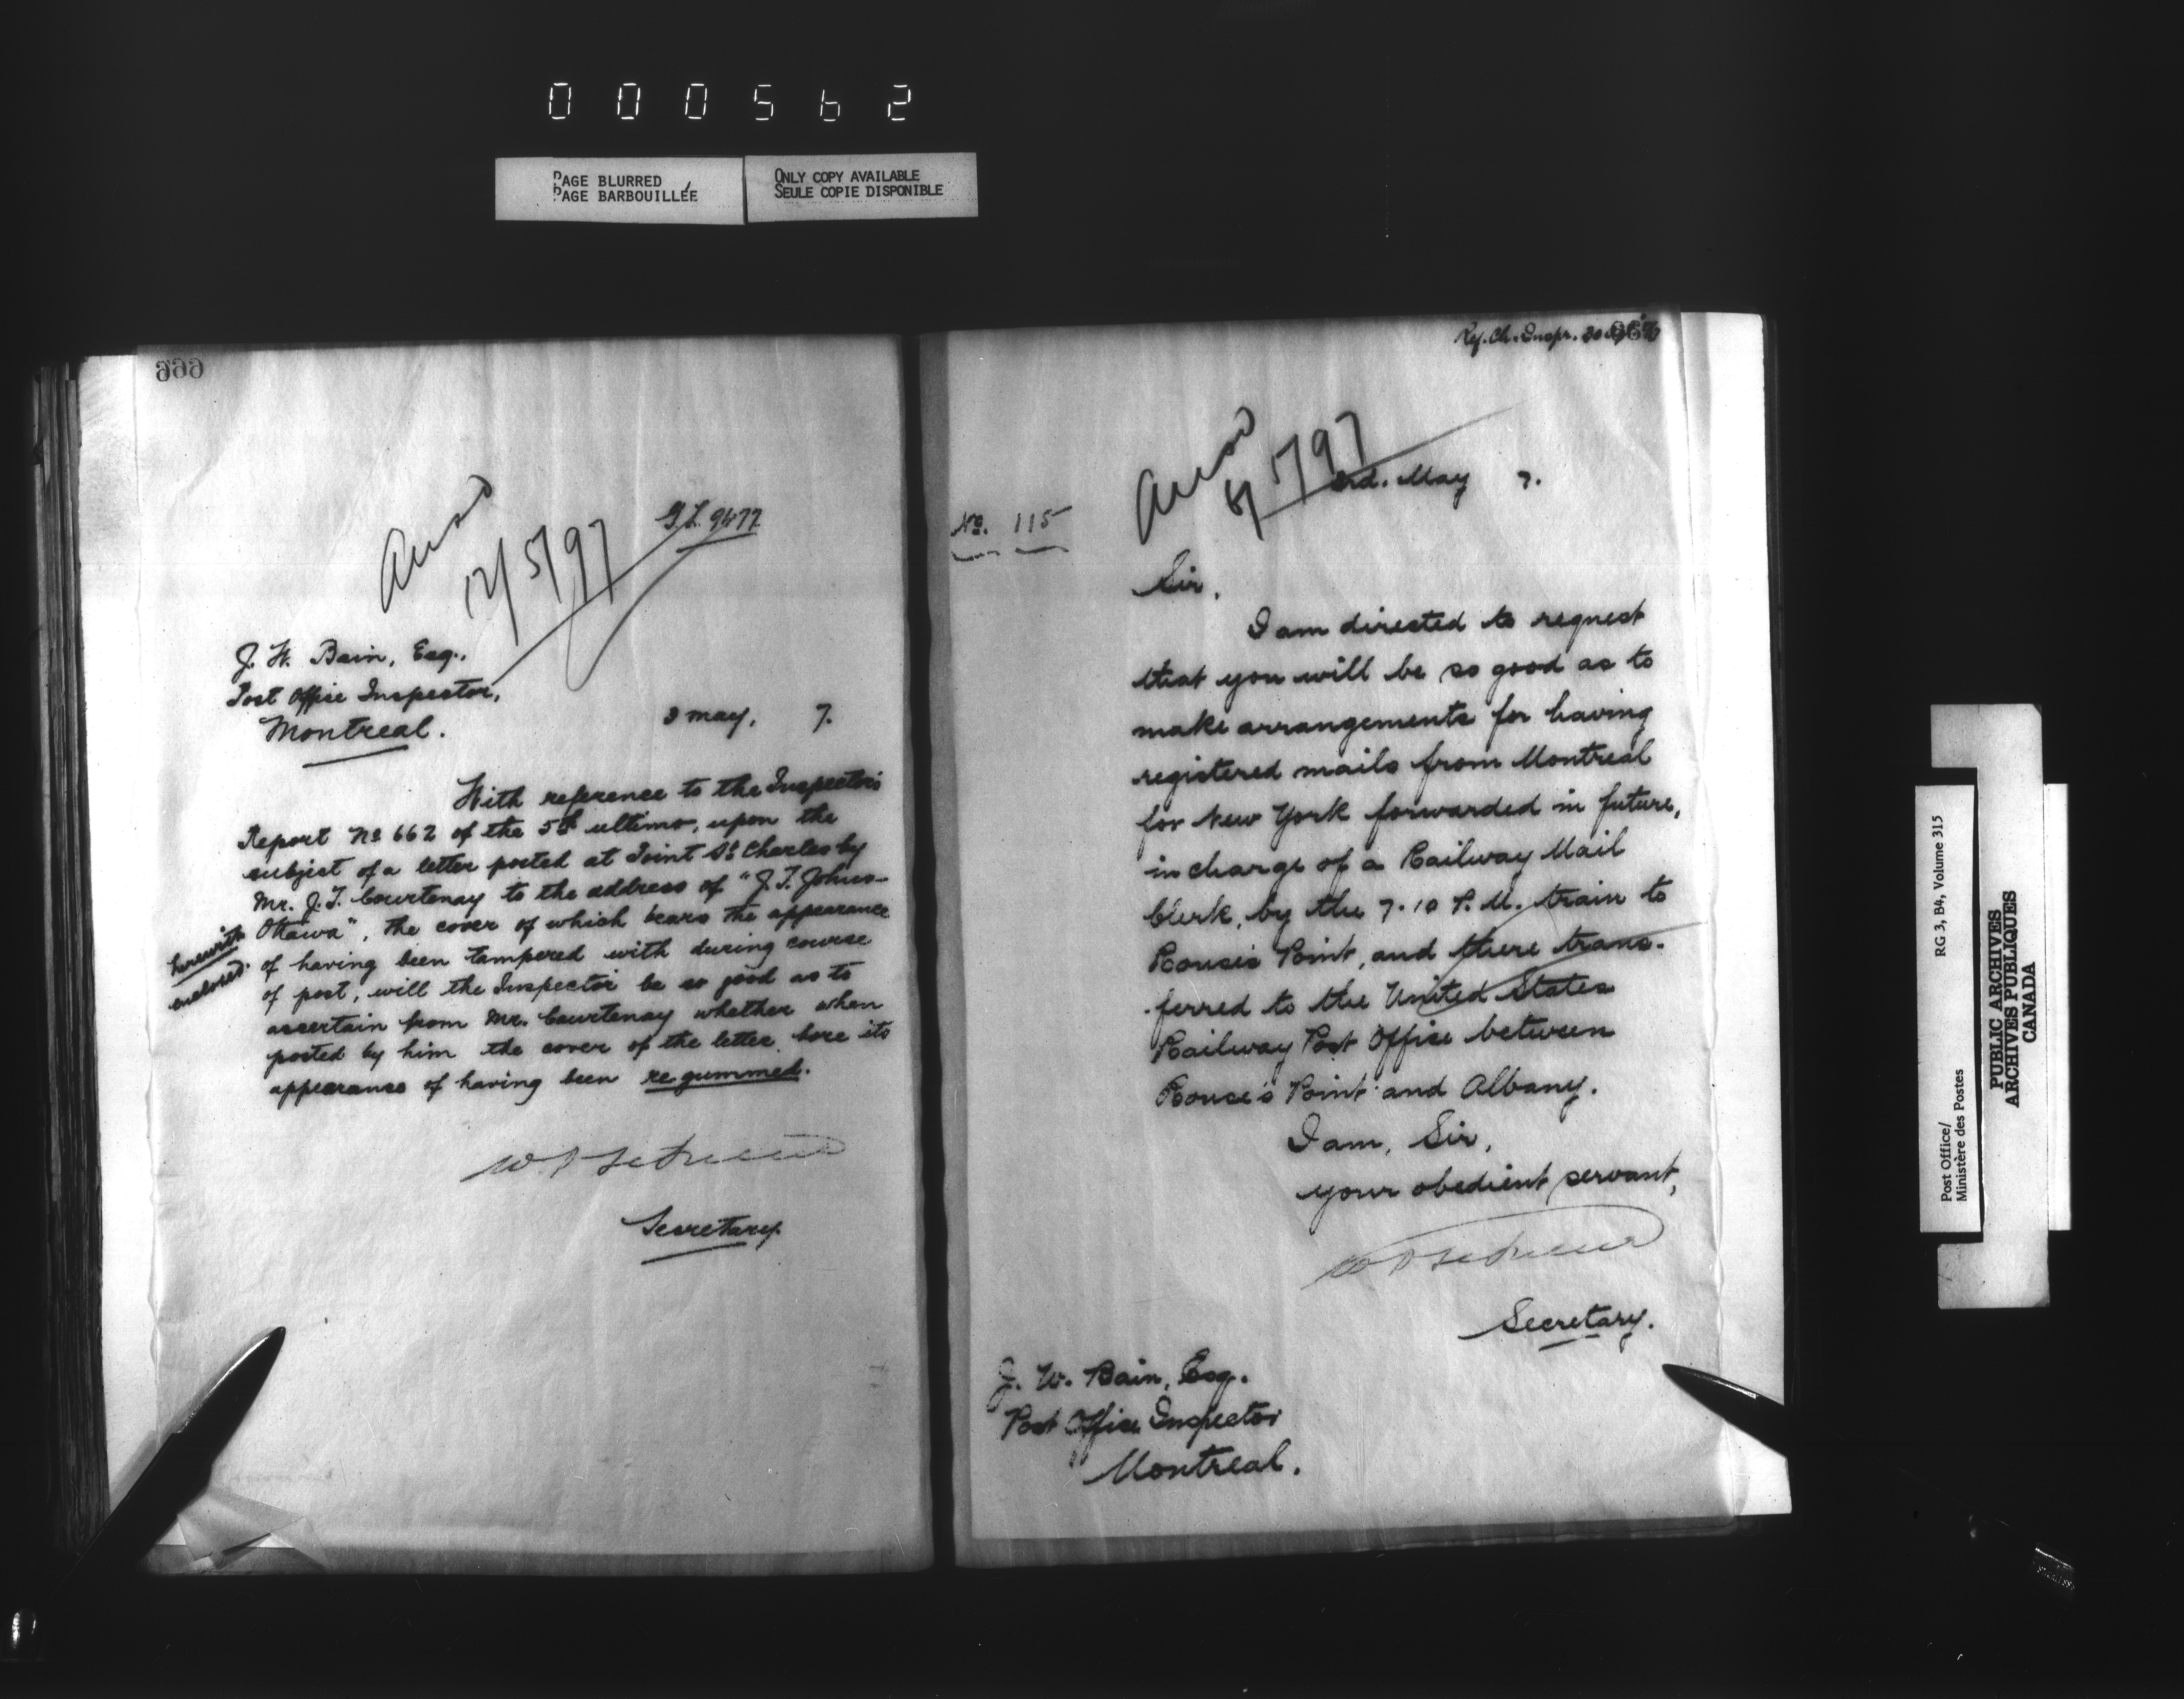 000562
PAGE BLURRED
PAGE BARBOUILLÉE
ONLY COPY AVAILABLE
SEULE COPIE DISPONIBLE
Answd
12/5/97
J. W. Bain, Esq.,
Post Office Inspector,
Montreal.
3 May, 7.
With reference to the Inspector's
Report No 662 of the 5th ultimo, upon the
subject of a letter posted at Point St Charles by
Mr. J. T. Courtenay to the address of "J. T. Johns-
herewith enclosed.
Ottawa", the cover of which bears the appearance
of having been tampered with during course
of post, will the Inspector be so good as to
ascertain from Mr. Courtenay whether when
posted by him the cover of the letter bore its
appearance of having been re gummed.
Secretary.
Ref. Ch. Inspr. 30
Answd
8/5/97
3rd. May 7.
No. 115
Sir,
I am directed to request
that you will be so good as to
make arrangements for having
registered mails from Montreal
for New York forwarded in future,
in charge of a Railway Mail
Clerk, by the 7.10 P.M. train to
Rouse's Point, and there trans-
ferred to the United States
Railway Post Office between
Rouse's Point and Albany.
I am, Sir,
your obedient servant,
Secretary.
J. W. Bain, Esq.
Post Office Inspector
Montreal.
Post Office/
Ministère des Postes
RG 3, B4, Volume 315
PUBLIC ARCHIVES
ARCHIVES PUBLIQUES
CANADA